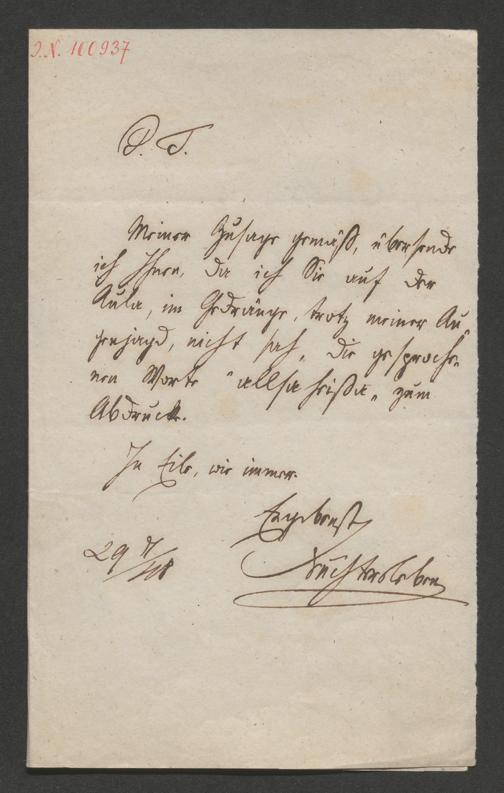 J. N. 100937
P. T.
Meiner Zusage gemäß, übersende
ich Ihnen, da ich Sie auf der
Aula, im Gedränge, trotz meiner Au-
genjagd, nicht sah, die gesproche-
nen Worte " " zum
Abdruck.
In Eile, wie immer
Ergebenst
Feuchtersleben
29 7/48